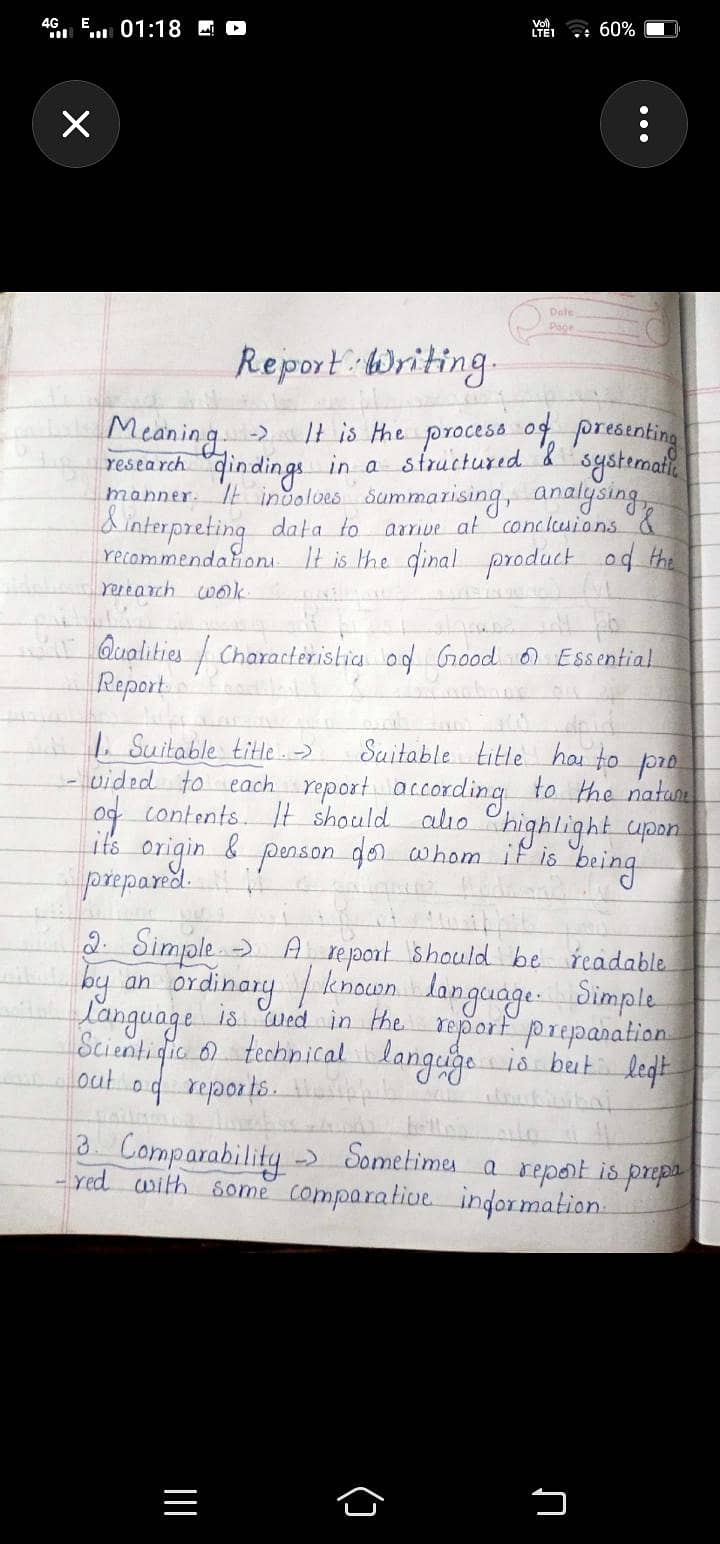 4G E 01:18 Vo) LTE1 60%
Date
Page
Report Writing.
Meaning -> It is the process of presenting
research findings in a structured & systematic
manner. It involves summarising, analysing,
& interpreting data to arrive at conclusions &
recommendations. It is the final product of the
research work.
Qualities / Characteristics of Good or Essential
Report
1. Suitable title. -> Suitable title has to pro
- vided to each report according to the nature
of contents. It should also highlight upon
its origin & person for whom it is being
prepared.
2. Simple -> A report should be readable
by an ordinary / known language. Simple
language is used in the report preparation
Scientific or technical languge is best left
out of reports.
3. Comparability -> Sometimes a report is prepa
- red with some comparative information.